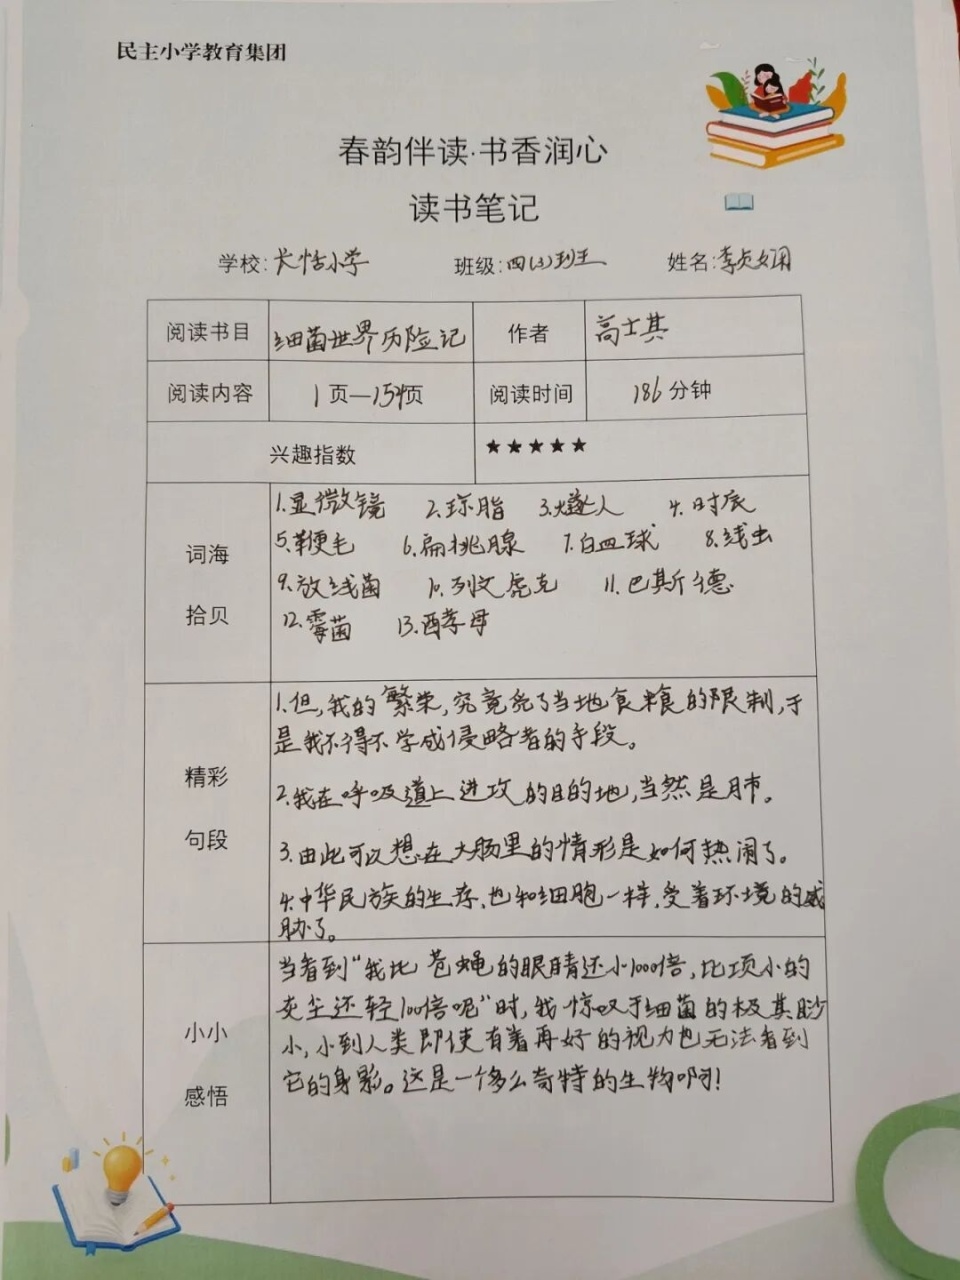 民主小学教育集团
春韵伴读·书香润心
读书笔记
学校:长恬小学 班级:四(3)班 姓名:李贞娴
阅读书目 细菌世界历险记 作者 高士其
阅读内容 1页—154页 阅读时间 186分钟
兴趣指数 ★★★★★
词海
拾贝
1.显微镜 2.琼脂 3.燧人 4.时底
5.鞭毛 6.扁桃腺 7.白血球 8.线虫
9.放线菌 10.列文虎克 11.巴斯德
12.霉菌 13.酵母
精彩
句段
1.但,我的繁荣,究竟受了当地食粮的限制,于
是我不得不学成侵略者的手段。
2.我在呼吸道上进攻的目的地,当然是肺。
3.由此可以想在大肠里的情形是如何热闹了。
4.中华民族的生存,也和细胞一样,受着环境的威
胁了。
小小
感悟
当看到“我比苍蝇的眼睛还小1000倍,比顶小的
灰尘还轻100倍呢”时,我惊叹于细菌的极其眇
小,小到人类即使有着再好的视力也无法看到
它的身影。这是一个多么奇特的生物啊!